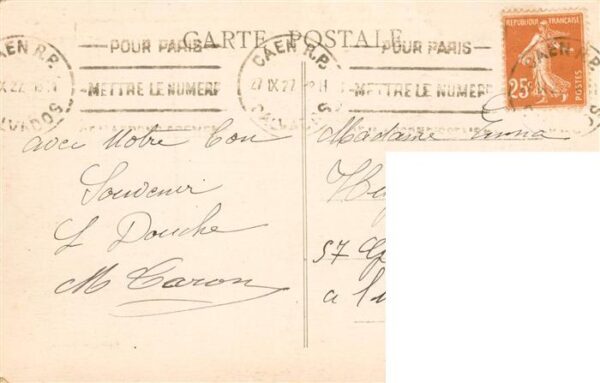 CARTE POSTALE
CAEN R.P.
27 IX 27
CALVADOS
POUR PARIS
METTRE LE NUMERO
CAEN R.P.
27 IX 27
CALVADOS
POUR PARIS
METTRE LE NUMERO
REPUBLIQUE FRANÇAISE
25c
POSTES
avec Notre bon
Souvenir
Y Douche
M Caron
Madame
57
a l'